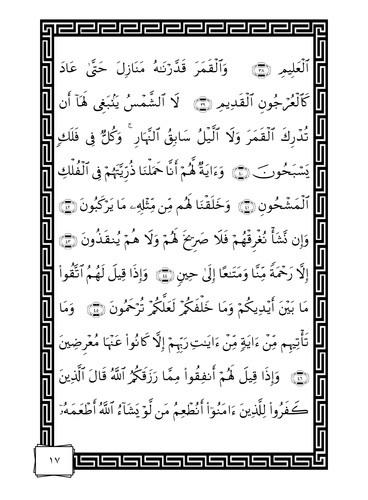 ٱلْعَلِيمِ ﴿٣٨﴾ وَٱلْقَمَرَ قَدَّرْنَٰهُ مَنَازِلَ حَتَّىٰ عَادَ
كَٱلْعُرْجُونِ ٱلْقَدِيمِ ﴿٣٩﴾ لَا ٱلشَّمْسُ يَنۢبَغِى لَهَآ أَن
تُدْرِكَ ٱلْقَمَرَ وَلَا ٱلَّيْلُ سَابِقُ ٱلنَّهَارِ ۚ وَكُلٌّ فِى فَلَكٍ
يَسْبَحُونَ ﴿٤٠﴾ وَءَايَةٌ لَّهُمْ أَنَّا حَمَلْنَا ذُرِّيَّتَهُمْ فِى ٱلْفُلْكِ
ٱلْمَشْحُونِ ﴿٤١﴾ وَخَلَقْنَا لَهُم مِّن مِّثْلِهِۦ مَا يَرْكَبُونَ ﴿٤٢﴾
وَإِن نَّشَأْ نُغْرِقْهُمْ فَلَا صَرِيخَ لَهُمْ وَلَا هُمْ يُنقَذُونَ ﴿٤٣﴾
إِلَّا رَحْمَةً مِّنَّا وَمَتَٰعًا إِلَىٰ حِينٍ ﴿٤٤﴾ وَإِذَا قِيلَ لَهُمُ ٱتَّقُوا۟
مَا بَيْنَ أَيْدِيكُمْ وَمَا خَلْفَكُمْ لَعَلَّكُمْ تُرْحَمُونَ ﴿٤٥﴾ وَمَا
تَأْتِيهِم مِّنْ ءَايَةٍ مِّنْ ءَايَٰتِ رَبِّهِمْ إِلَّا كَانُوا۟ عَنْهَا مُعْرِضِينَ
﴿٤٦﴾ وَإِذَا قِيلَ لَهُمْ أَنفِقُوا۟ مِمَّا رَزَقَكُمُ ٱللَّهُ قَالَ ٱلَّذِينَ
كَفَرُوا۟ لِلَّذِينَ ءَامَنُوٓا۟ أَنُطْعِمُ مَن لَّوْ يَشَآءُ ٱللَّهُ أَطْعَمَهُۥٓ
١٧